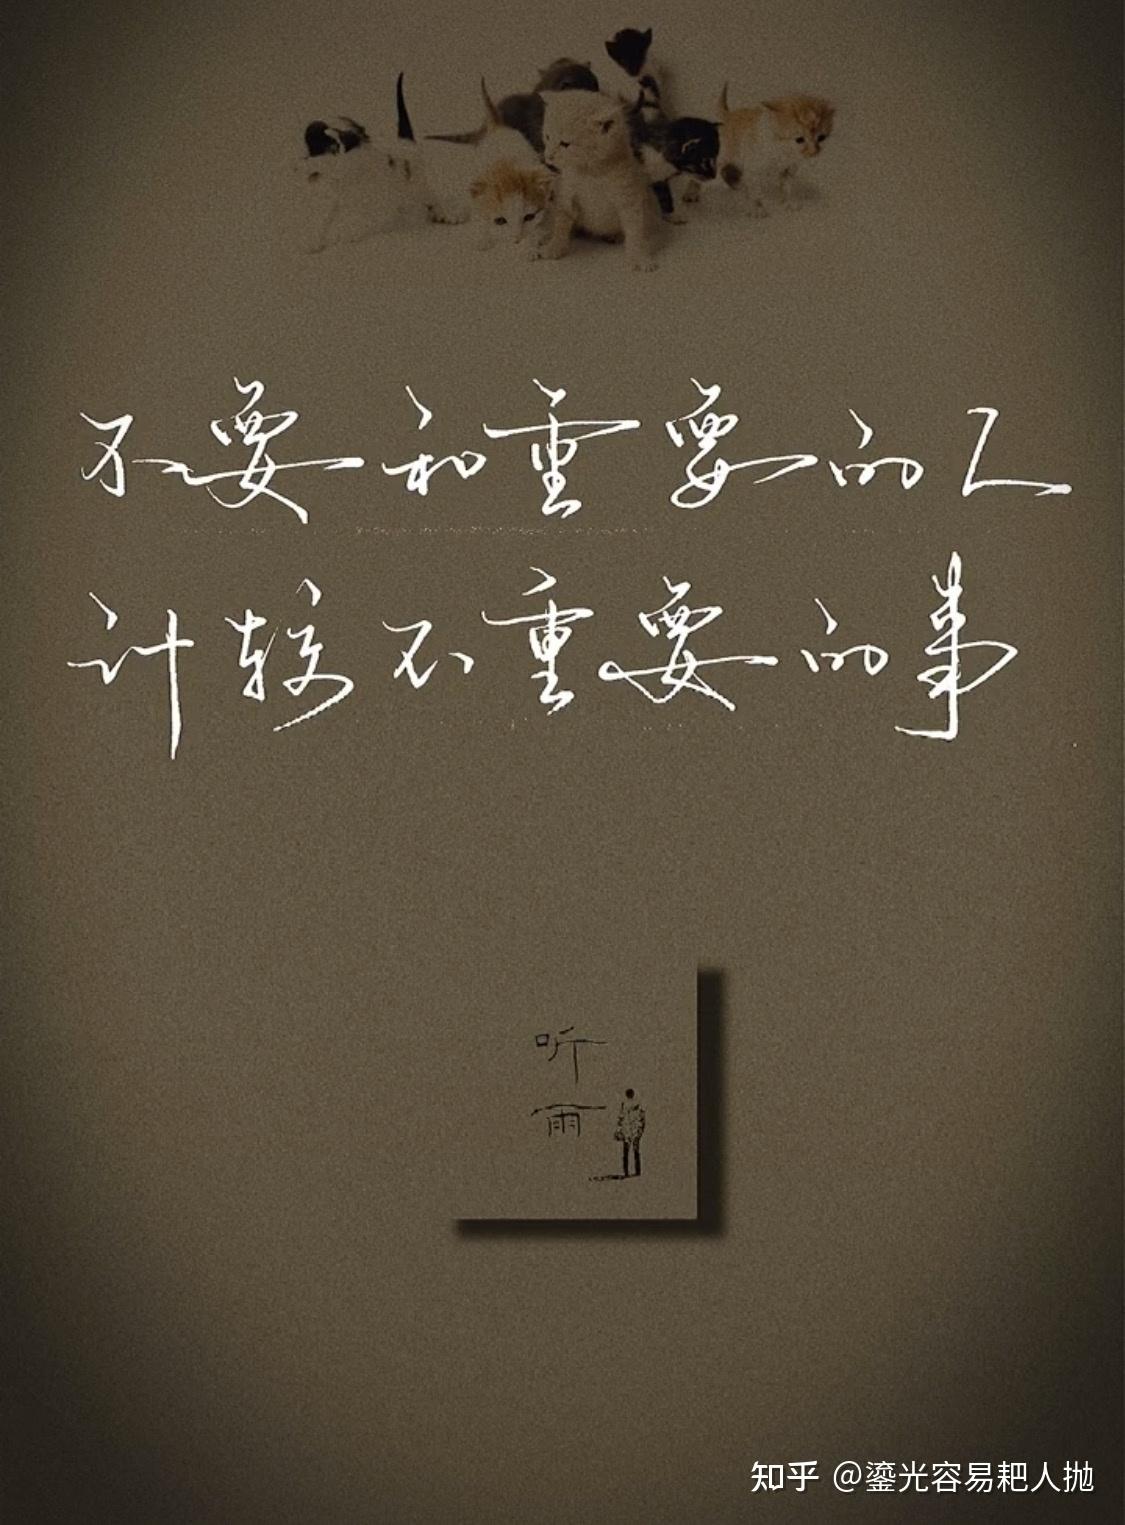 不要和重要的人
计较不重要的事
听
雨
知乎 @鎏光容易耙人抛